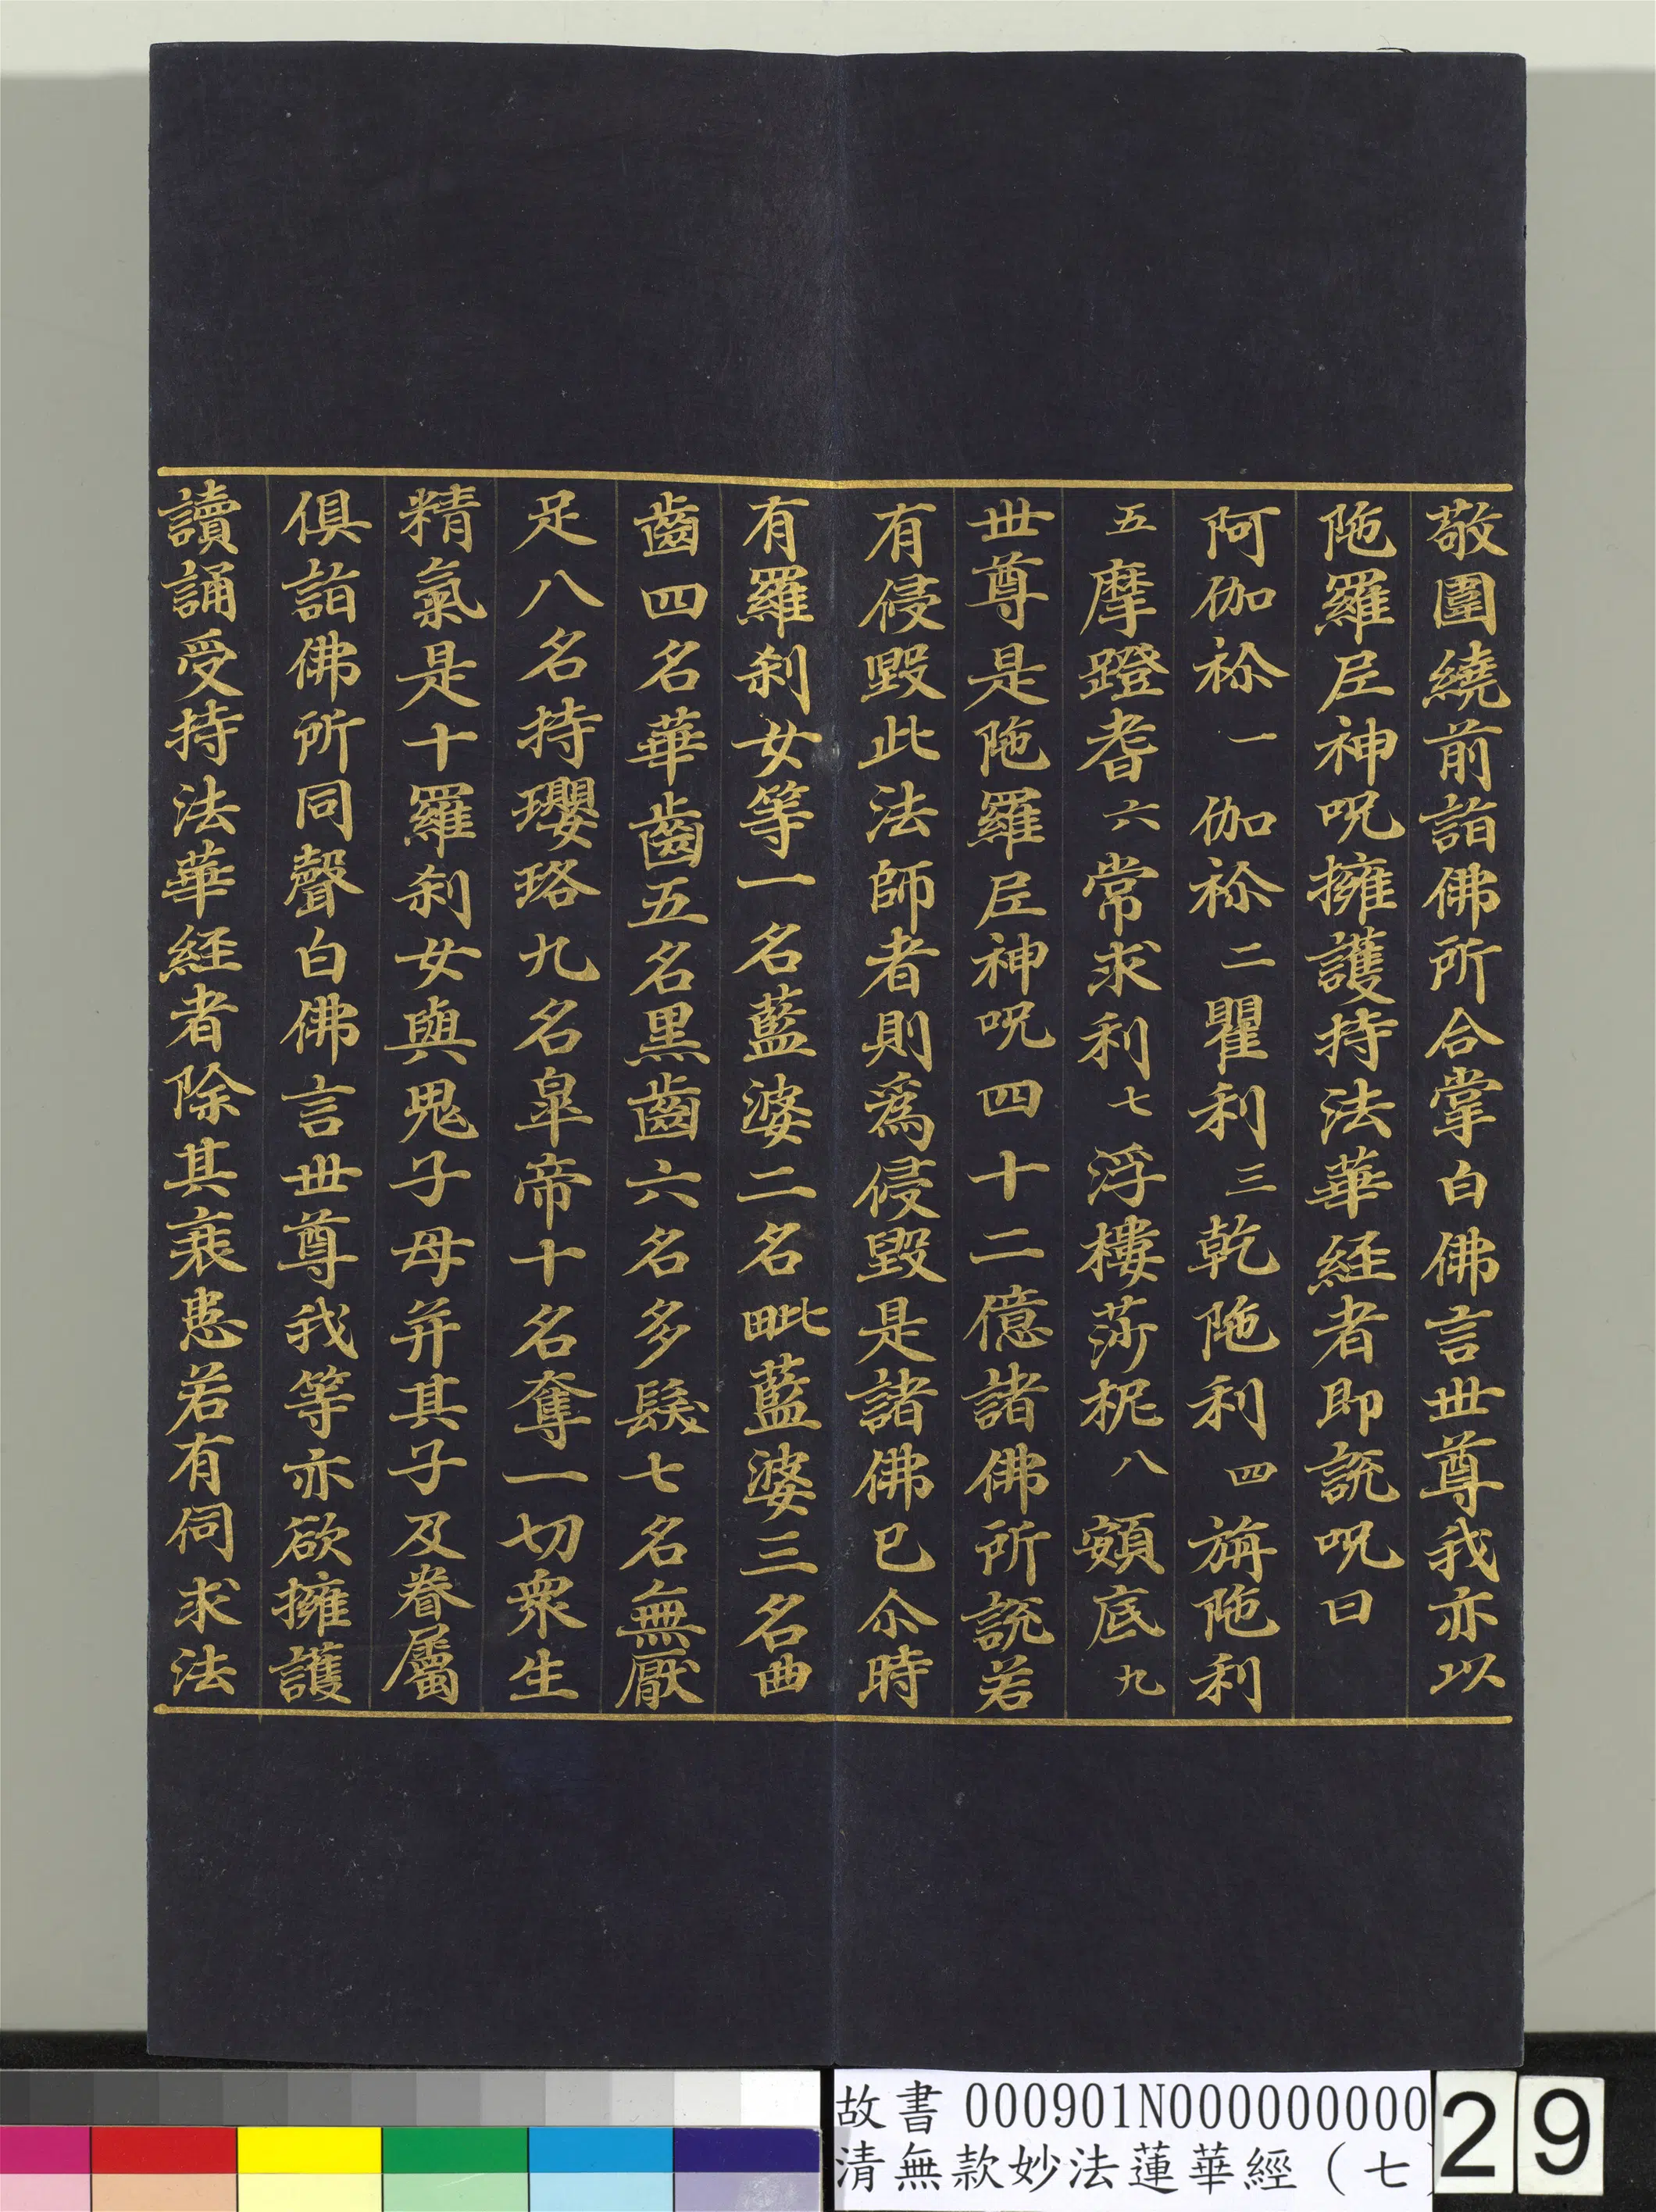 敬圍繞前詣佛所合掌白佛言世尊我亦以
陁羅𡰱神呪擁護持法華経者即說呪曰
阿伽祢一伽祢二瞿利三乾陁利四旃陁利
五摩蹬耆六常求利七浮樓莎柅八頞底九
世尊是陁羅𡰱神呪四十二億諸佛所說若
有侵毀此法師者則爲侵毀是諸佛已尒時
有羅刹女等一名藍婆二名毗藍婆三名曲
齒四名華齒五名黒齒六名多髮七名無厭
足八名持瓔珞九名臯帝十名奪一切衆生
精氣是十羅刹女與鬼子母并其子及眷屬
俱詣佛所同聲白佛言世尊我等亦欲擁護
讀誦受持法華経者除其衰患若有伺求法
故書 000901N000000000
清無款妙法蓮華經（七
29